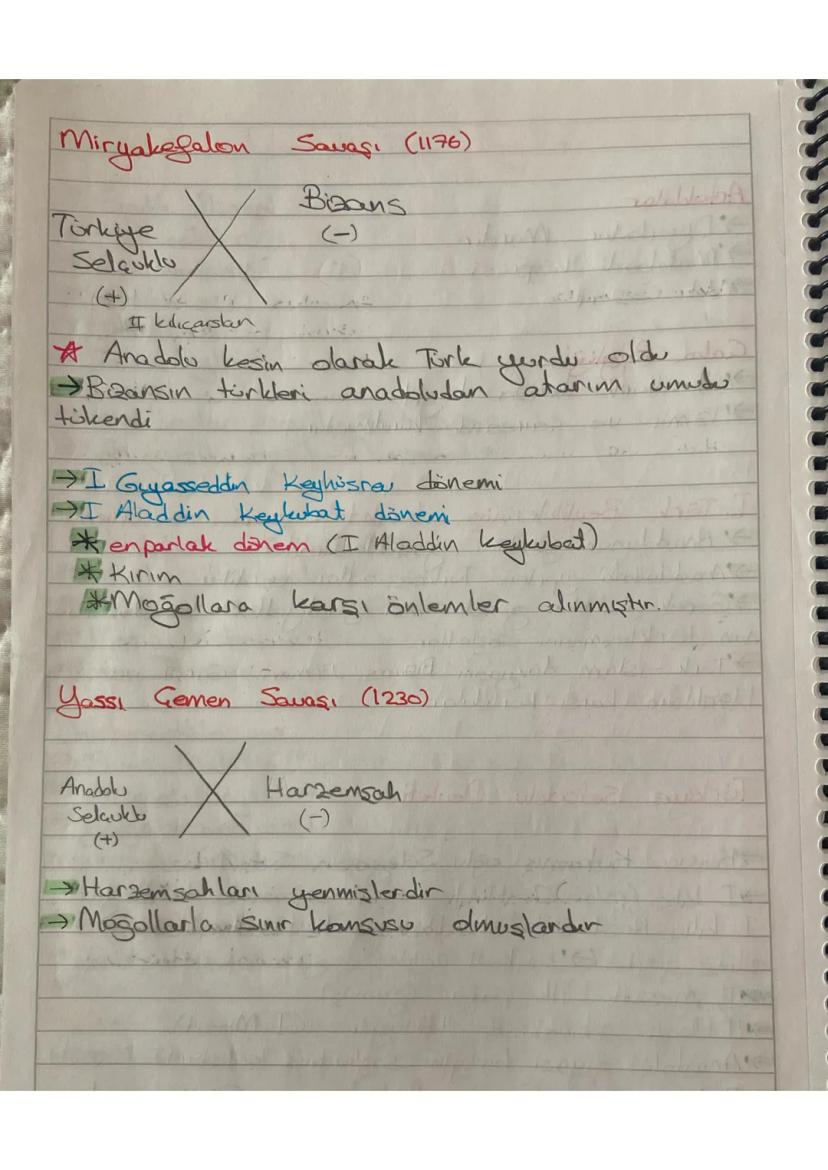 Miryakefalon Savaşı (1176)
Bizans
(-)
Türkiye
Selçuklu
(+)
II kılıçarslan
☆ Anadolu kesin olarak Türk yurdu oldu
→ Bizansın türkleri anadoludan atarım umudu
tükendi
→ I Gıyasseddin Keyhüsrev dönemi
→ I Aladdin Keykubat dönemi
* en parlak dönem (I Aladdin keykubat)
* Kırım
* Moğollara karşı önlemler alınmıştır.
Yassı Çemen Savaşı (1230)
Anadolu
Selçuklu
(+)
Harzemşah
(-)
→ Harzemşahları yenmişlerdir
→ Moğollarla sınır komşusu olmuşlardır